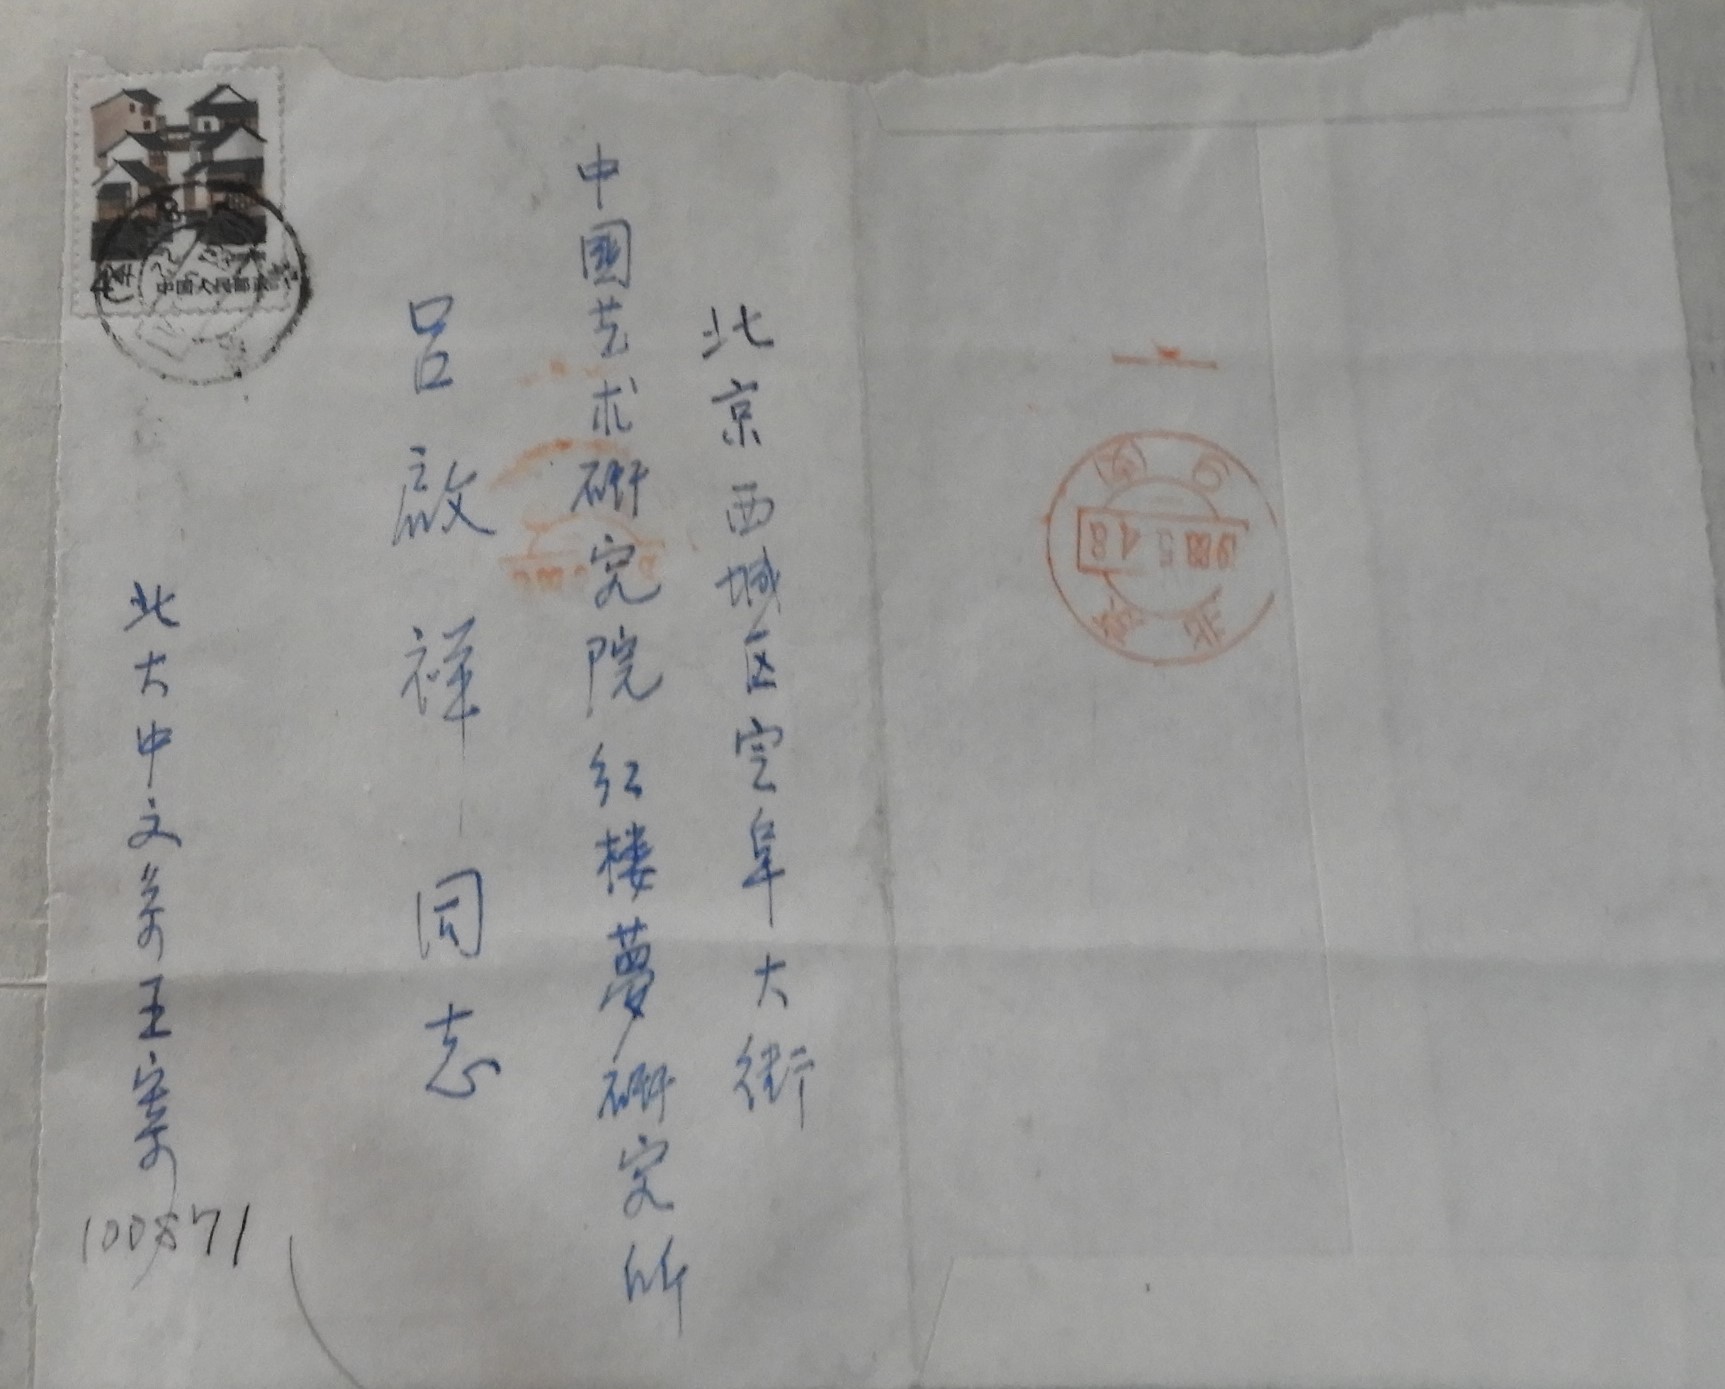 北京西城区定阜大街
中國艺术研究院红楼夢研究所
吕啟祥同志
北大中文系王寄
100871
中国人民邮政
北京
1988 5 4 8